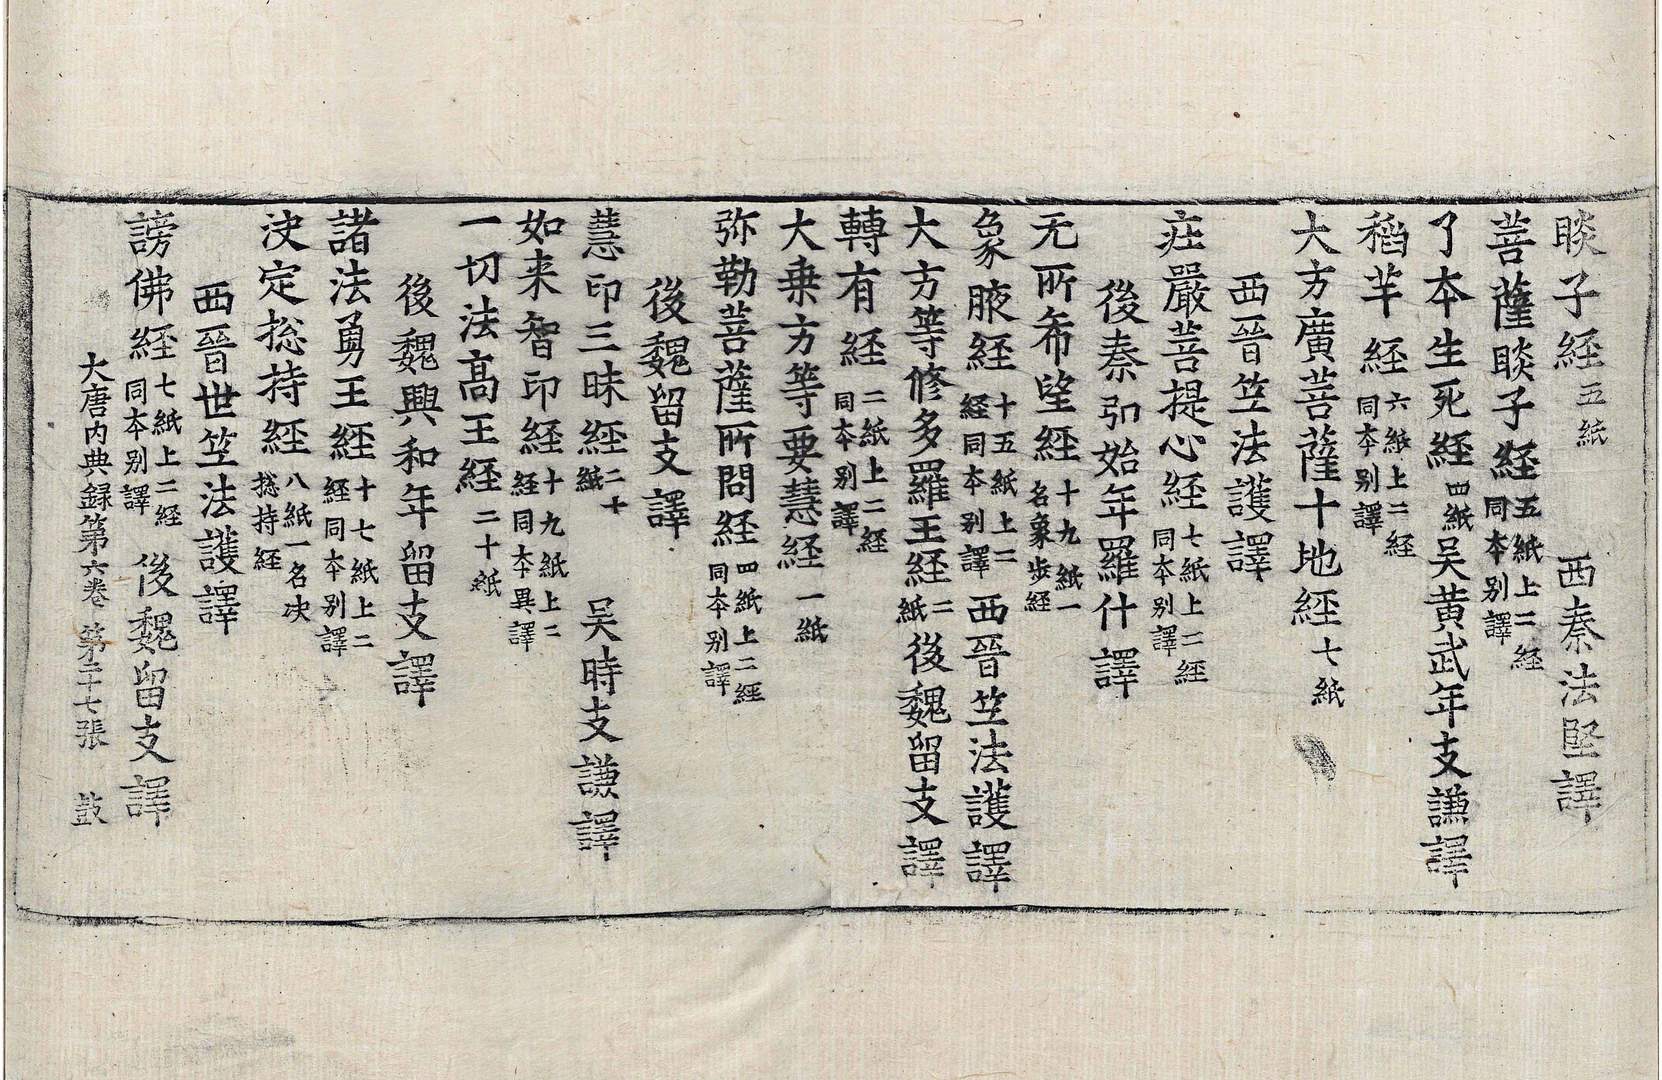 睒子経五紙 西秦法堅譯
菩薩睒子経五紙上二経同本别譯
了本生死経四紙吴黄武年支謙譯
稻芉経六紙上二経同本别譯
大方廣菩薩十地経七紙
西晉笁法護譯
疘嚴菩提心経七紙上二経同本别譯
後秦弘始年羅什譯
无所希望経十九紙一名象步経
象腋経十五紙上二経同本别譯西晉笁法護譯
大方等修多羅王経二紙後魏留支譯
轉有経二紙上二経同本别譯
大乗方等要慧経一紙
弥勒菩薩所問経四紙上二経同本别譯
後魏留支譯
慧印三昧経二十紙 吴時支謙譯
如来智印経十九紙上二経同本異譯
一切法髙王経二十紙
後魏興和年留支譯
諸法勇王経十七紙上二経同本别譯
决定捴持経八紙一名决捴持経
西晉世笁法護譯
謗佛経七紙上二経同本别譯 後魏留支譯
大唐内典録第六卷 第二十七張 鼓